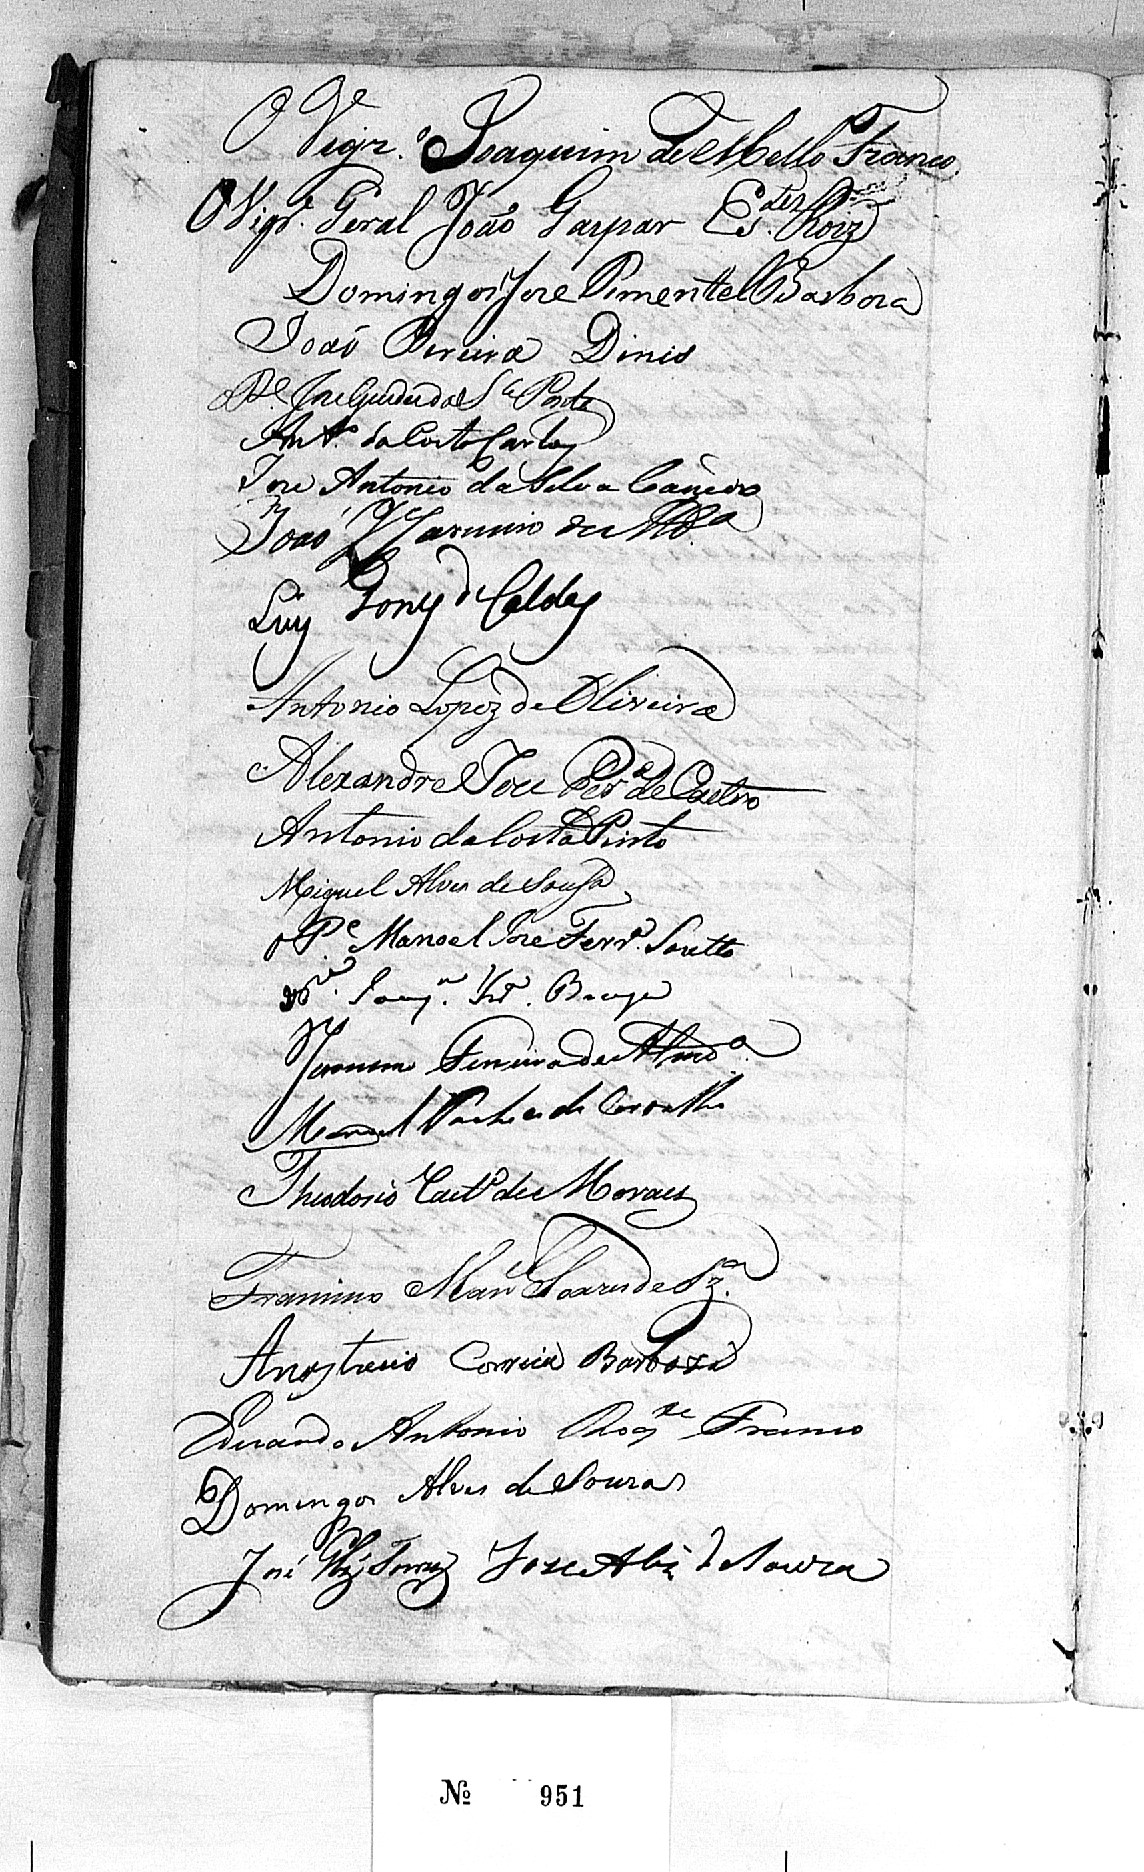 O Vigr.º Joaquim de Mello Franco
O Vigr.º Geral João Gaspar Es.tes Roiz
Domingos Jose Pimentel Barbosa
João Pereira Dinis
Pe. Je
Ant.º da Costa
Joze Antonio da Silva
João de Alm.da
Luis Gomes de Caldas
Antonio Lopez de Oliveira
Alexandre Joze Per.ª de Castro
Antonio da Costa Pinto
Miguel Alves de Sousa
O Pe Manoel José Ferr.ª Soutto
Joaq.m
Jeronimo Ferreira de Almd.ª
Manoel Pacheco de Carvalho
Theodosio Caet.º de Moraes
Francisco Man.el Soares de Sz.ª
Anastacio Correia Barboza
Eduardo Antonio Roq.ue Franco
Domingos Alves de Souza
José Joze Alz de Souza
№ 951